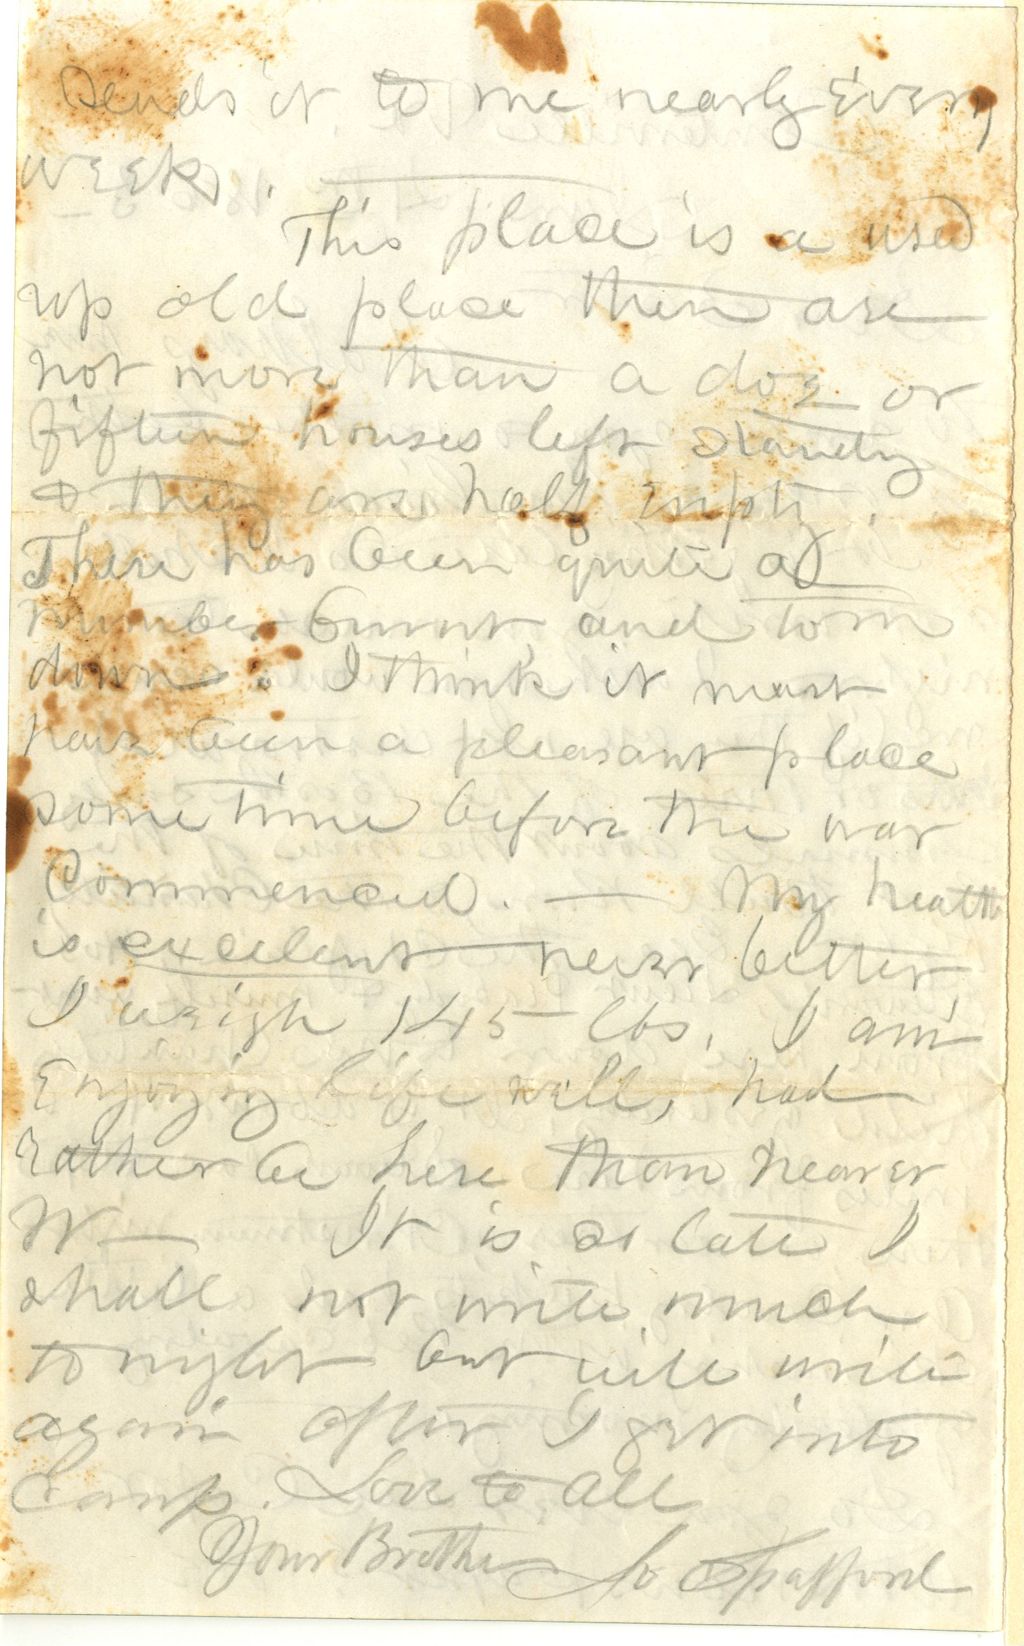 sends it to me nearly Every
week.
This place is a used
up old place there are
not more than a doz or
fifteen houses left standing
& they are half empty.
There has been quite a
number burnt, and torn
down. I think it must
have been a pleasant place
some time before the war
Commenced. — My health
is excelent never better
I weigh 145 lbs. I am
Enjoying life well, had
rather be here than nearer
W— It is so late I
shall not write much
to night but will write
again after I get into
Camp. Love to all
Your Brother Jo Spafford